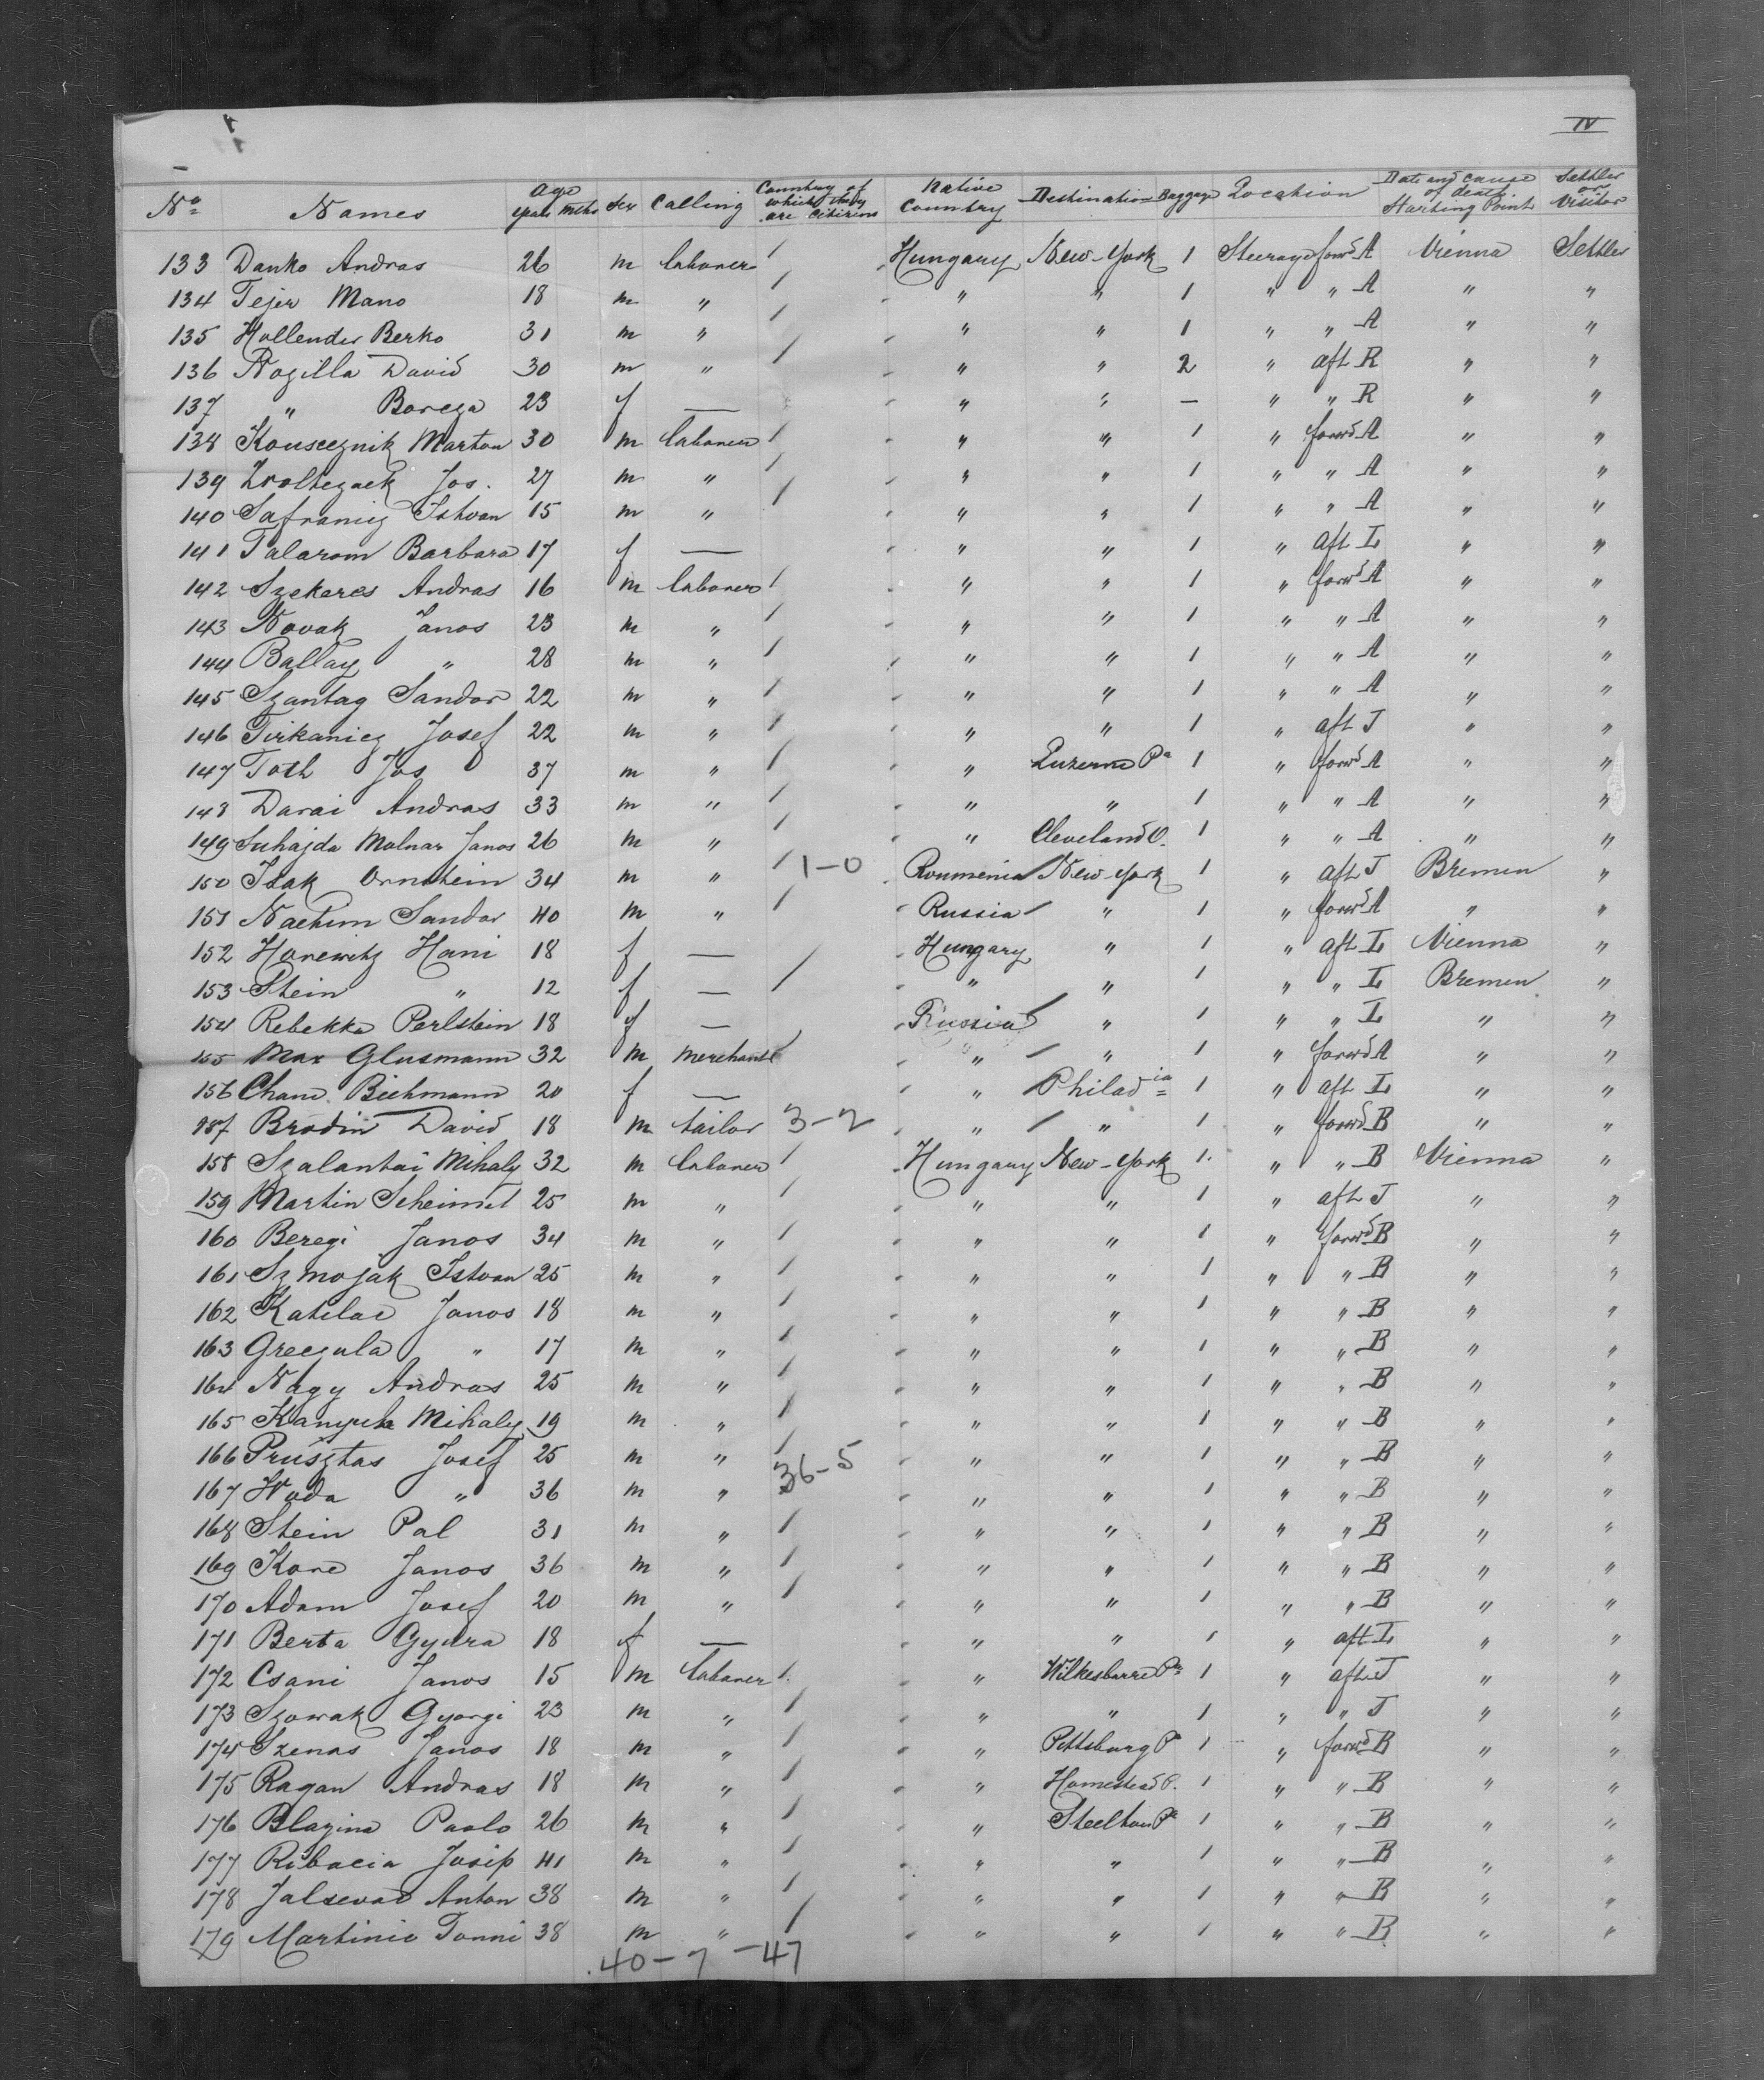 IV
No Names Age years mths Sex Calling Country of which they are citizens Native Country Destination Baggage Location Date and cause of death Starting Point Settler or Visitor
133 Danko Andras 26 m laborer / Hungary New-York 1 Steerage forwd A Vienna Settler
134 Fejer Mano 18 m " / " " 1 " " A " "
135 Hollender Berko 31 m " / " " 1 " " A " "
136 Rozilla David 30 m " / " " 2 " aft R " "
137 " Borcza 23 f — " " — " " R " "
138 Marton 30 m laborer / " " 1 " forwd A " "
139 Jos. 27 m " / " " 1 " " A " "
140 Safranicz Istvan 15 m " / " " 1 " " A " "
141 Talarom Barbara 17 f — " " 1 " aft L " "
142 Szekeres Andras 16 m laborer / " " 1 " forwd A " "
143 Novak Janos 23 m " / " " 1 " " A " "
144 Ballay " 28 m " / " " 1 " " A " "
145 Szantag Sandor 22 m " / " " 1 " " A " "
146 Tirkanicz Josef 22 m " / " " 1 " aft J " "
147 Toth Jos 37 m " / " Luzerne Pa 1 " forwd A " "
148 Darai Andras 33 m " / " " 1 " " A " "
149 Suhajda Molnar Janos 26 m " / " Cleveland O. 1 " " A " "
150 Isak Ornstein 34 m " / 1-0 Roumenia New-York 1 " aft J Bremen "
151 Nachim Sandor 40 m " / Russia " 1 " forwd A " "
152 Horewitz Hani 18 f — Hungary " 1 " aft L Vienna "
153 Stein " 12 f — / " " 1 " " L Bremen "
154 Rebekka Perlstein 18 f — Russia " 1 " " L " "
155 Max Glusmann 32 m merchant / " " 1 " forwd A " "
156 Biehmann 20 f — " Philadia 1 " aft L " "
157 Brodin David 18 m tailor 3-2 " " 1 " forwd B " "
158 Szalantai Mihaly 32 m laborer / Hungary New-York 1 " " B Vienna "
159 Martin 25 m " / " " 1 " aft J " "
160 Beregi Janos 34 m " / " " 1 " forwd B " "
161 Szmojak Istvan 25 m " / " " 1 " " B " "
162 Katilac Janos 18 m " / " " 1 " " B " "
163 Greczula " 17 m " / " " 1 " " B " "
164 Nagy Andras 25 m " / " " 1 " " B " "
165 Kanyuk Mihaly 19 m " / " " 1 " " B " "
166 Prusztas Josef 25 m " / " " 1 " " B " "
167 " 36 m " 36-5 " " 1 " " B " "
168 Stein Pal 31 m " / " " 1 " " B " "
169 Kore Janos 36 m " / " " 1 " " B " "
170 Adam Josef 20 m " / " " 1 " " B " "
171 Berta Gyura 18 f — " " 1 " aft L " "
172 Csani Janos 15 m laborer / " Wilkesbarre Pa 1 " aft J " "
173 Szowak Gyorgi 23 m " / " " 1 " " J " "
174 Szenas Janos 18 m " / " Pittsburg Pa 1 " forwd B " "
175 Ragan Andras 18 m " / " Homestead P. 1 " " B " "
176 Blazina Paolo 26 m " / " Steelton Pa 1 " " B " "
177 Ribacia Josip 41 m " / " " 1 " " B " "
178 Jalsevac Anton 38 m " / " " 1 " " B " "
179 Martinic Tonni 38 m " / " " 1 " " B " "
40-7-47